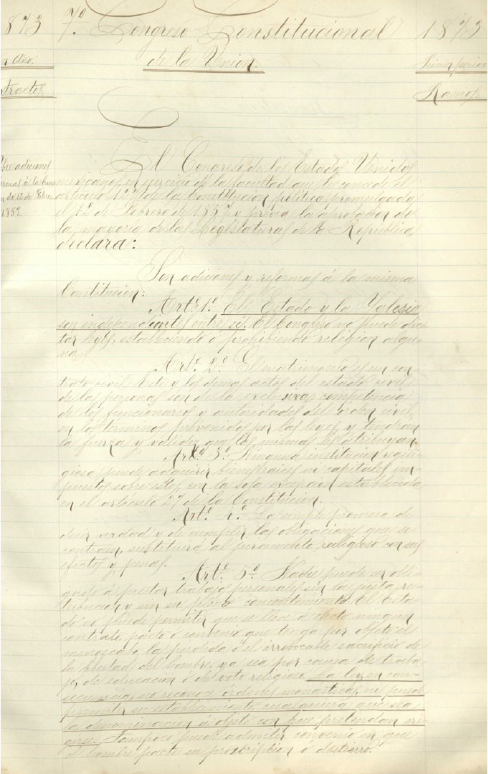 1873 7º. Congreso Constitucional 1873
de la Union.
El Congreso de los Estados Unidos
mexicanos en ejercicio de la facultad que le concede el
artículo 127 de la Constitucion política promulgada
el 12 de Febrero de 1857 y previa la aprobacion de
la mayoría de las Legislaturas de la República
declara:
Son adiciones y reformas á la misma
Constitucion:
Artº. 1º. El Estado y la Iglesia
son independientes entre sí. El Congreso no puede dic
tar leyes, estableciendo ó prohibiendo religion algu
na.
Artº. 2º. El matrimonio es un con
trato civil. Este y los demas actos del estado civil
de las personas son de la exclusiva competencia
de los funcionarios y autoridades del orden civil,
en los términos prevenidos por las leyes, y tendrán
la fuerza y validez que las mismas les atribuyan.
Artº. 3º. Ninguna institucion reli
giosa puede adquirir bienes raices ni capitales im
puestos sobre estos, con la sola excepcion establecida
en el artículo 27 de la Constitucion.
Artº. 4º. La simple promesa de
decir verdad y de cumplir las obligaciones que se
contraen, sustituirá al juramento religioso con sus
efectos y penas.
Artº. 5º. Nadie puede ser obli
gado á prestar trabajos personales sin la justa re
tribucion y sin su pleno consentimiento. El Estado
no puede permitir que se lleve á efecto ningun
contrato, pacto ó convenio que tenga por objeto el
menoscabo, la pérdida ó el irrevocable sacrificio de
la libertad del hombre, ya sea por causa de traba
jo, de educacion ó de voto religioso. La ley, en con
secuencia, no reconoce órdenes monásticas, ni puede
permitir su establecimiento, cualquiera que sea
la denominacion ú objeto con que pretendan eri
girse. Tampoco puede admitir convenio en que
el hombre pacte su proscripcion ó destierro.